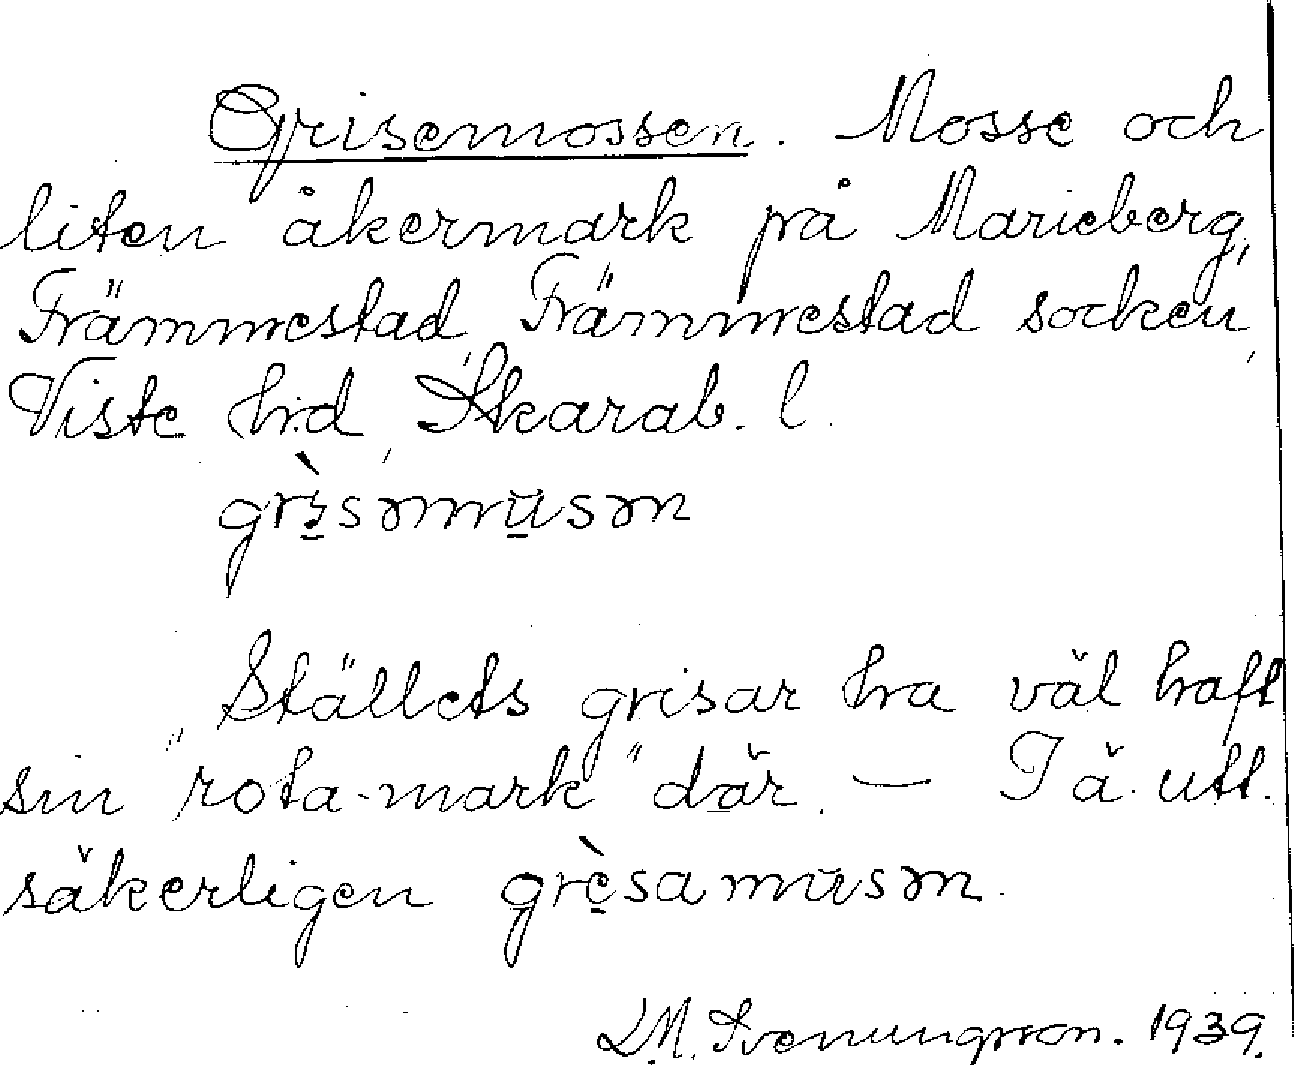 Grisemossen. Mosse och
liten åkermark på Marieberg,
Främmestad, Främmestad socken,
Viste hrd, Skarab. l.
grı̀səmusən
Ställets grisar ha väl haft
sin "rota-mark" där. — Tä utt.
säkerligen grèsamusən.
L.M. Svenungsson. 1939.